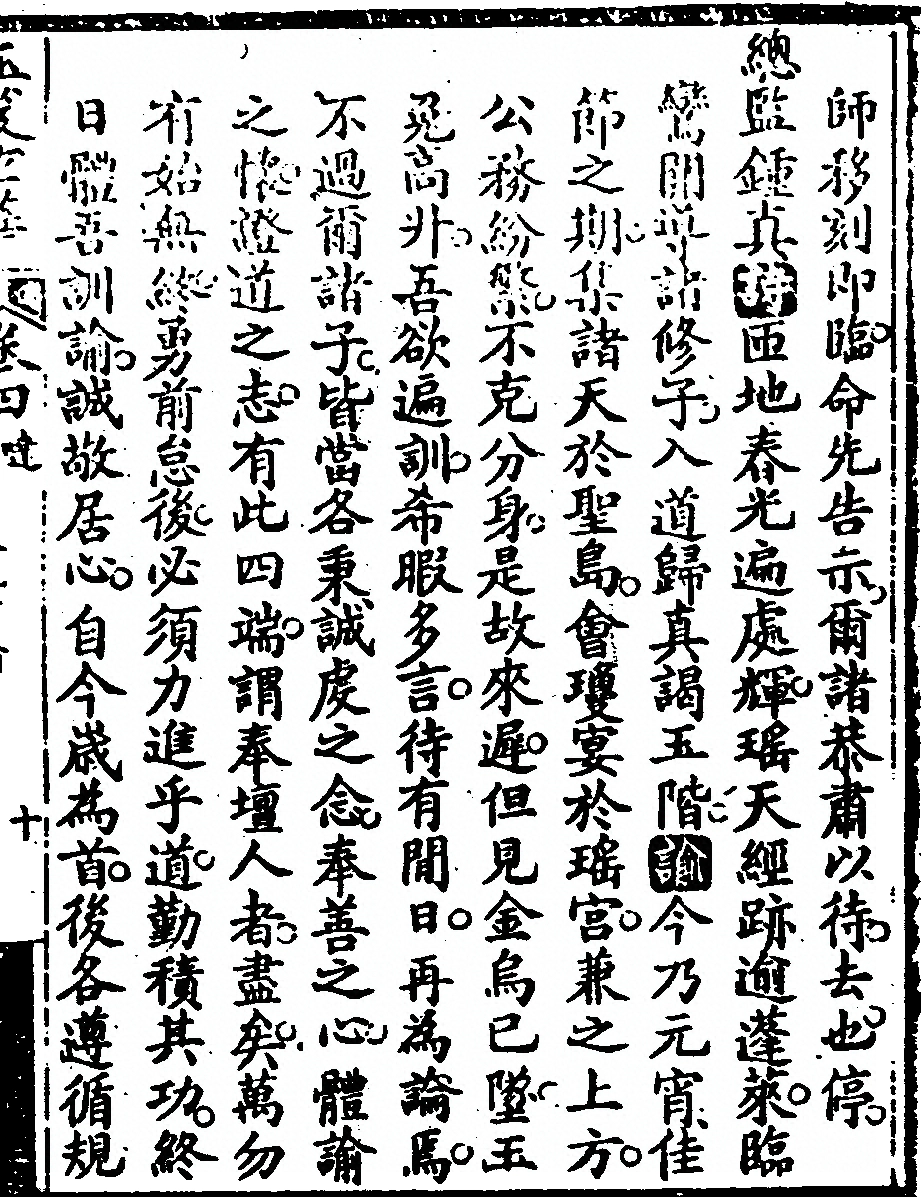 師移刻即臨命先告示爾諸恭肅以待去也停
總監鍾真詩匝地春光遍處輝瑤天經跡逾蓬萊臨
鸞開導諸修子入道歸真謁玉階諭今乃元宵佳
節之期集諸天於聖島會瓊宴於瑤宮兼之上方
公務紛繁不克分身是故來遲但見金烏已墜玉
兔高升吾欲遍訓希暇多言待有閒日再為論焉
不過爾諸子皆當各秉誠虔之念奉善之心體諭
之懷證道之志有此四端謂奉壇人者盡矣萬勿
有始無終勇前怠後必須力進乎道勤積其功終
日體吾訓諭誠敬居心自今歲為首後各遵循規
卷四
十